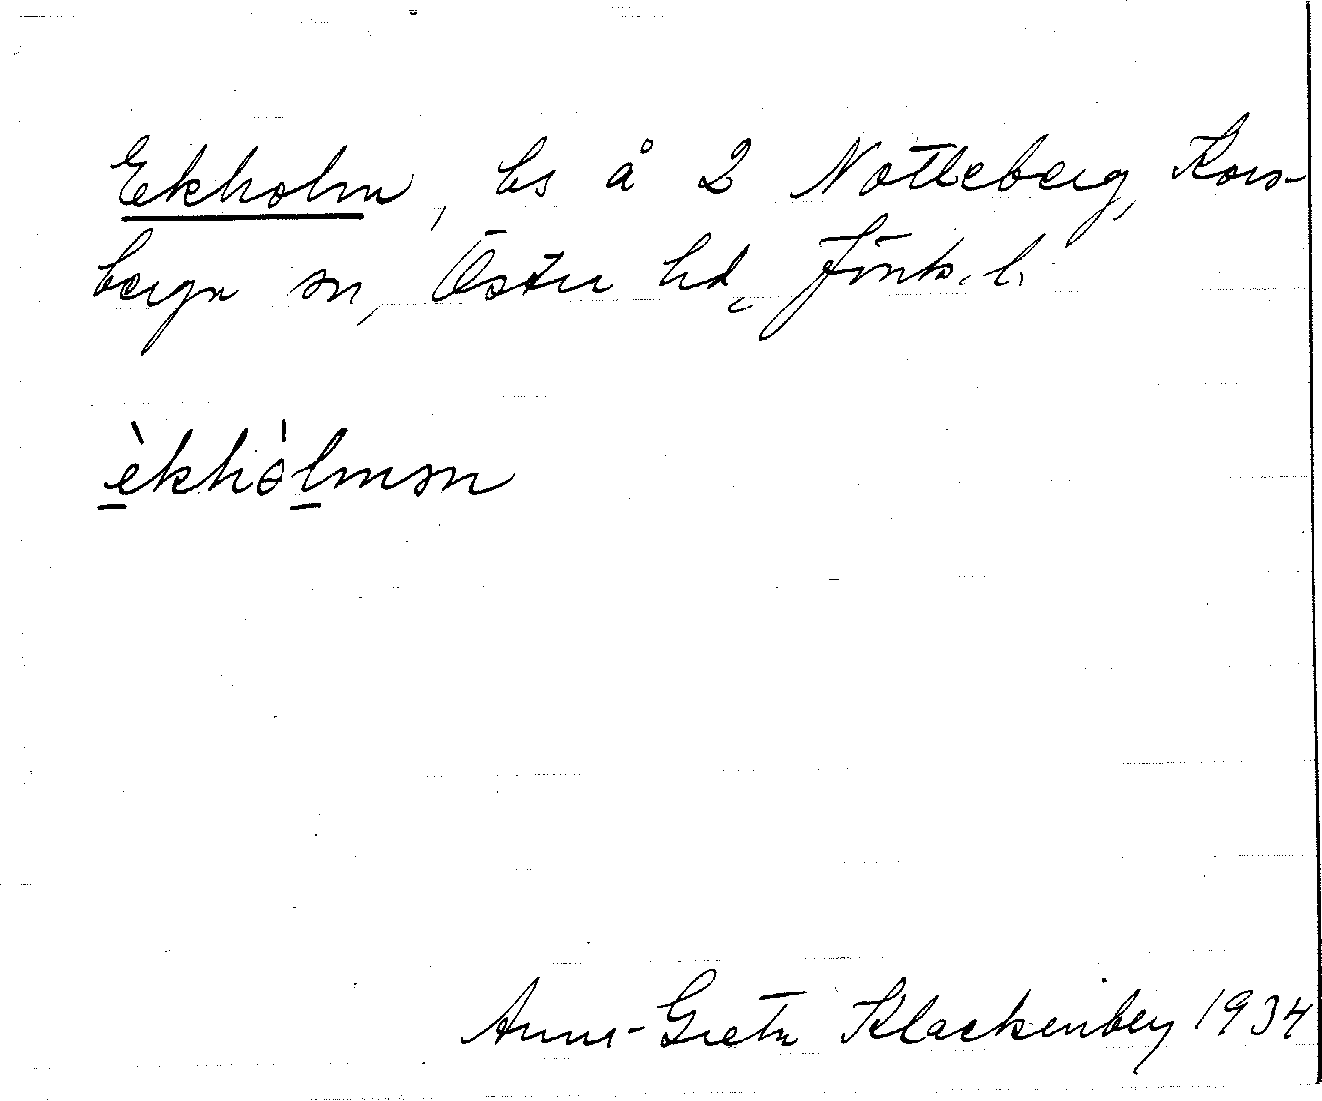 Ekholm, bs å 2 Notteberg, Kors-
berga sn, Östra hd, Jönk. l.
èkhòlmən
Anna-Greta Klackenberg 1934